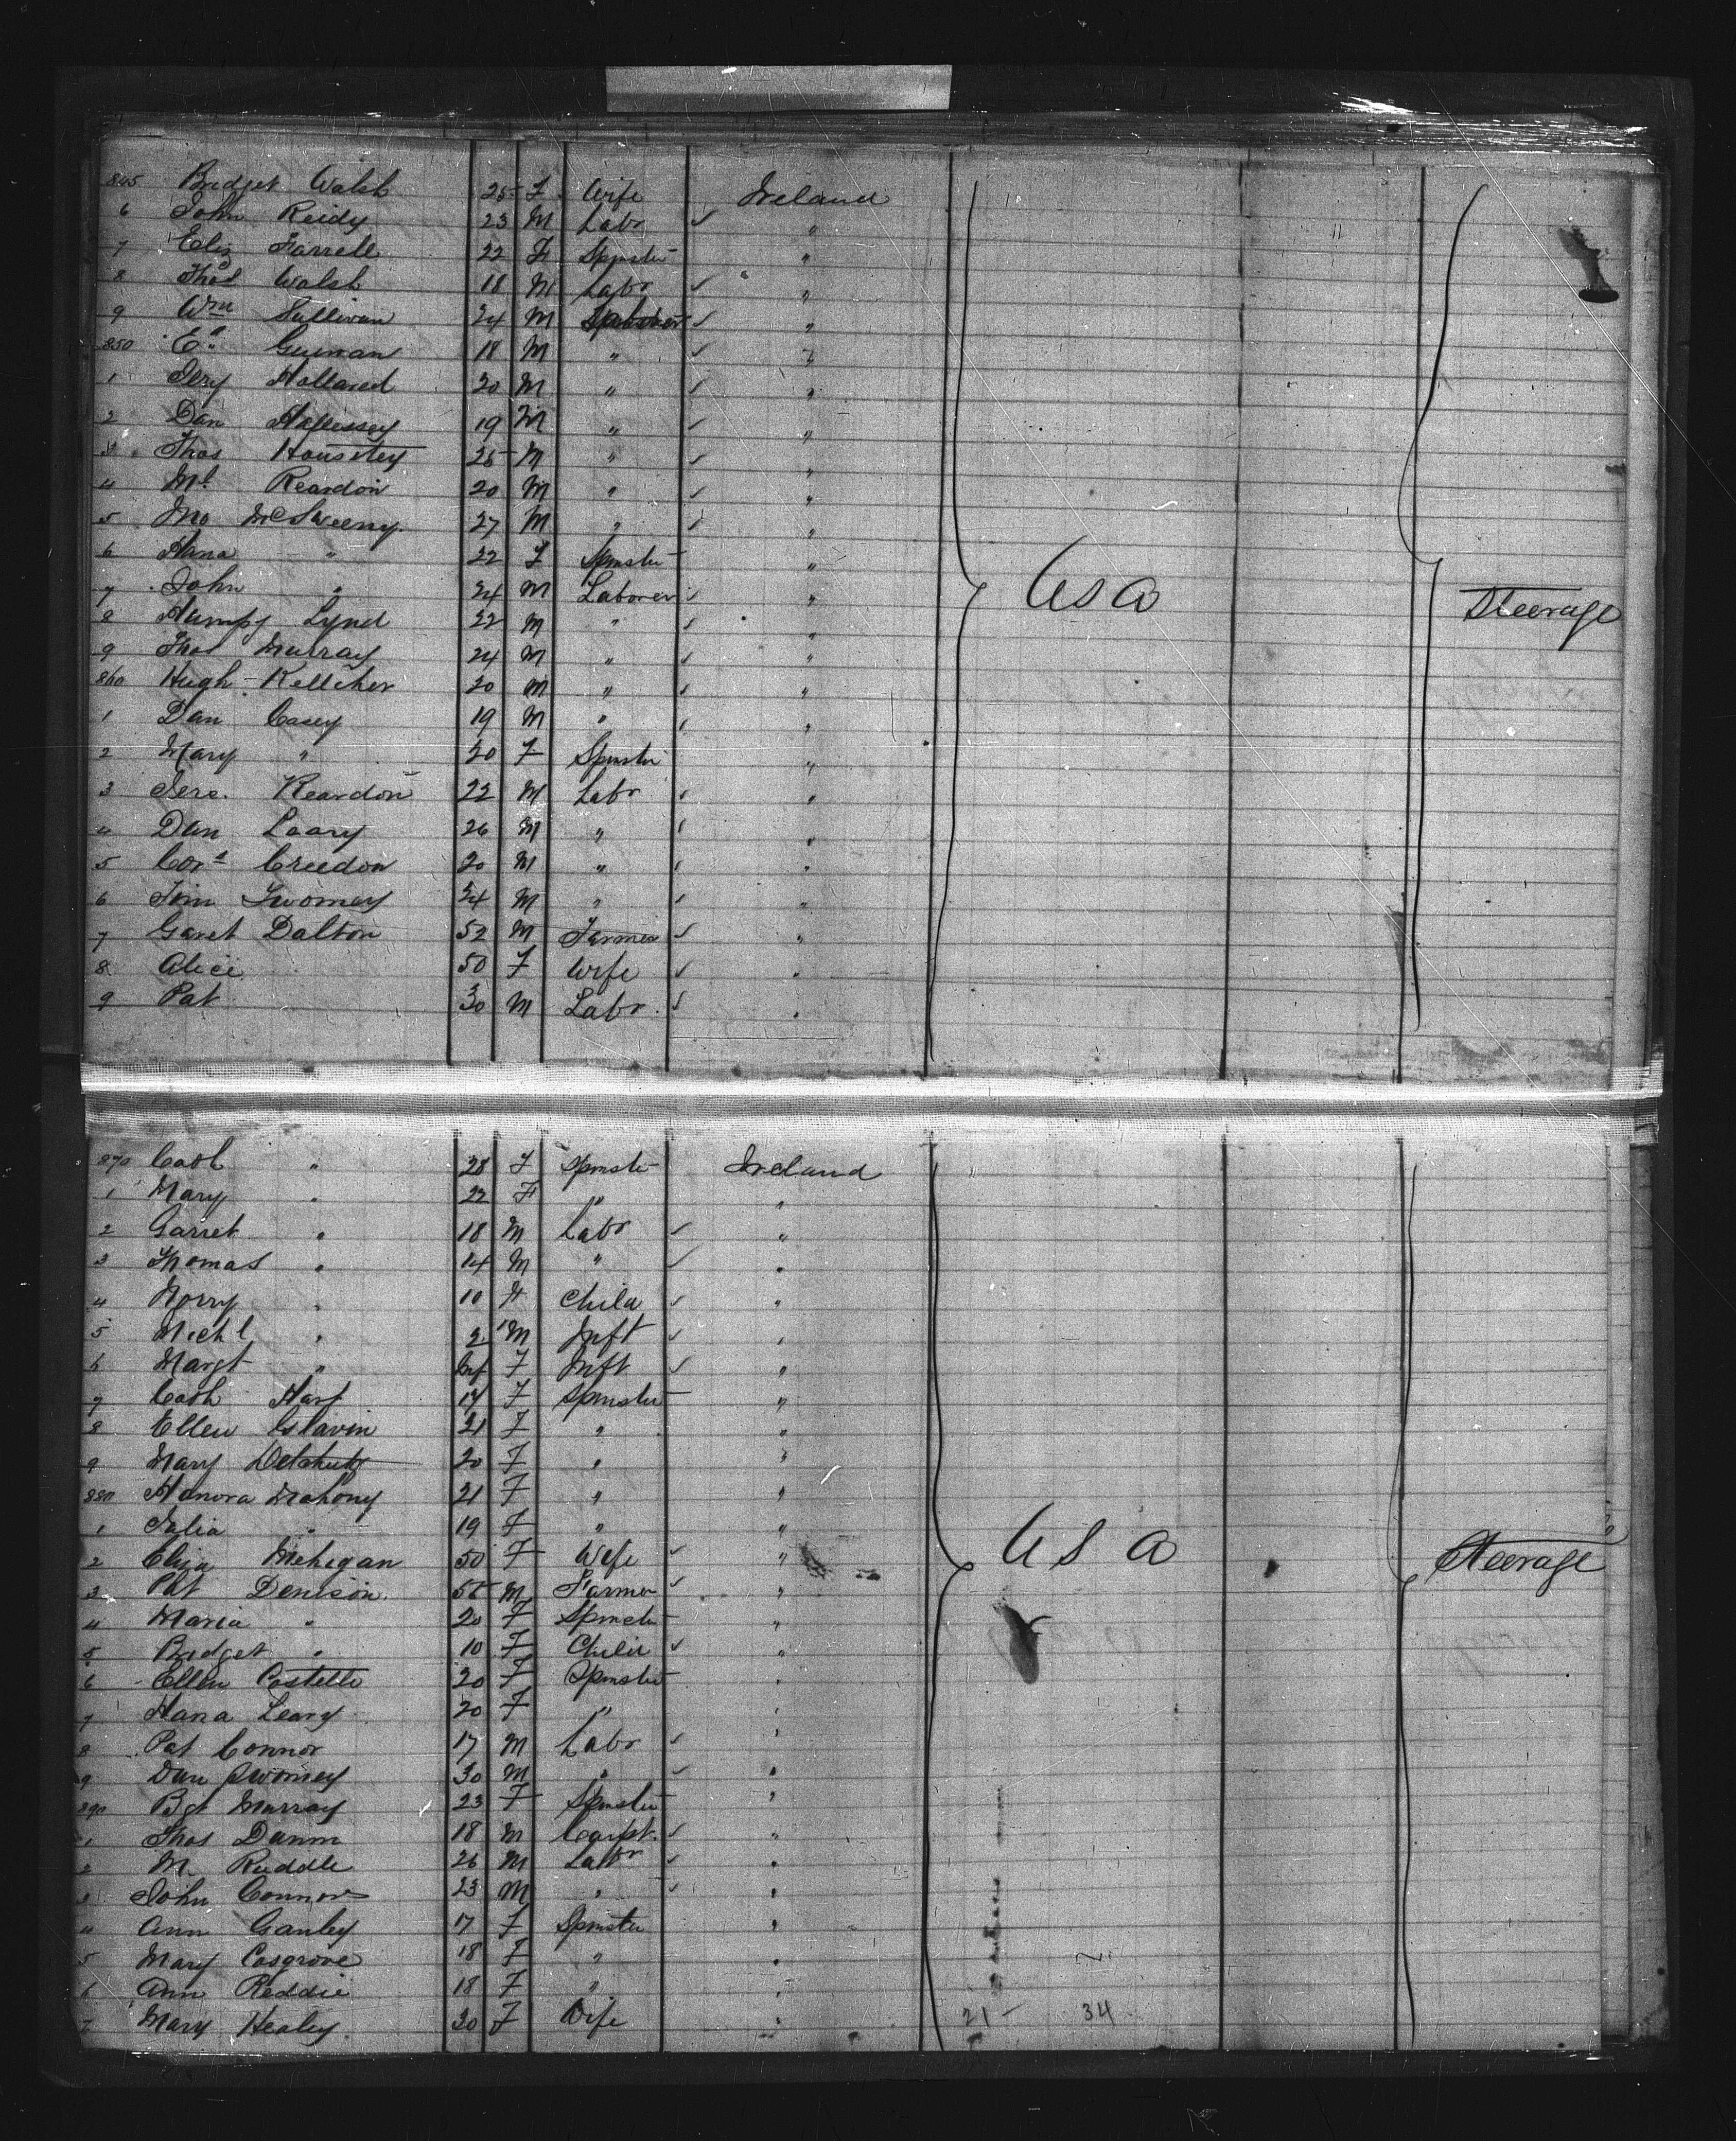 845 Bridget Walsh 25 F Wife Ireland
6 John Reidy 23 M Labr ✓ "
7 Eliz Farrell 22 F Spinster "
8 Thos Walsh 18 M Labr ✓ "
9 Wm Sullivan 24 M ✓ "
850 E" Guinan 18 M " ✓ "
1 Jery Holland 20 M " ✓ "
2 Dan 19 M " ✓ "
3 Thos 25 M " ✓ "
4 Ml Reardon 20 M " ✓ "
5 Jno McSweeny 27 M " ✓ "
6 Hana " 22 F Spinster "
7 John " 24 M Laborer ✓ "
USA
Steerage
8 Humpy Lynd 22 M " ✓ "
9 Thos Murray 24 M " ✓ "
860 Hugh Kelliher 20 M " ✓ "
1 Dan Casey 19 M " ✓ "
2 Mary " 20 F Spinster "
3 Jere. Reardon 22 M Labr ✓ "
4 Dan Leary 26 M " ✓ "
5 Cors Creedon 20 M " ✓ "
6 Tim Twomey 24 M " ✓ "
7 Garet Dalton 52 M Farmer ✓ "
8 Alice 50 F Wife ✓ "
9 Pat 30 M Labr ✓ "
870 Cath " 28 F Spinster Ireland
1 Mary " 22 F " "
2 Garret " 18 M Labr ✓ "
3 Thomas " 14 M " ✓ "
4 Norry " 10 F Child ✓ "
5 Michl " 2 M Inft ✓ "
6 Margt " F Inft ✓ "
7 Cath Hart 17 F Spinster "
8 Ellen Glavin 21 F " "
9 Mary 20 F " "
880 Hanora Mahony 21 F " "
1 Julia " 19 F " "
2 Eliza Mehegan 50 F Wife ✓ "
USA
Steerage
3 Pat Denison 55 M Farmer ✓ "
4 Maria " 20 F Spinster "
5 Bridget " 10 F Child ✓ "
6 Ellen Costello 20 F Spinster "
7 Hana Leary 20 F " "
8 Pat Connor 17 M Labr ✓ "
9 Dan Twomey 30 M " ✓ "
890 Bgt Murray 23 F Spinster "
1 Thos Dunn 18 M Carpt. ✓ "
2 M. Ruddle 26 M Labr ✓ "
3 John Connors 23 M " ✓ "
4 Ann Ganley 17 F Spinster "
5 Mary Cosgrove 18 F " "
6 Ann Reddie 18 F " "
7 Mary Healey. 30 F Wife "
21 - 34